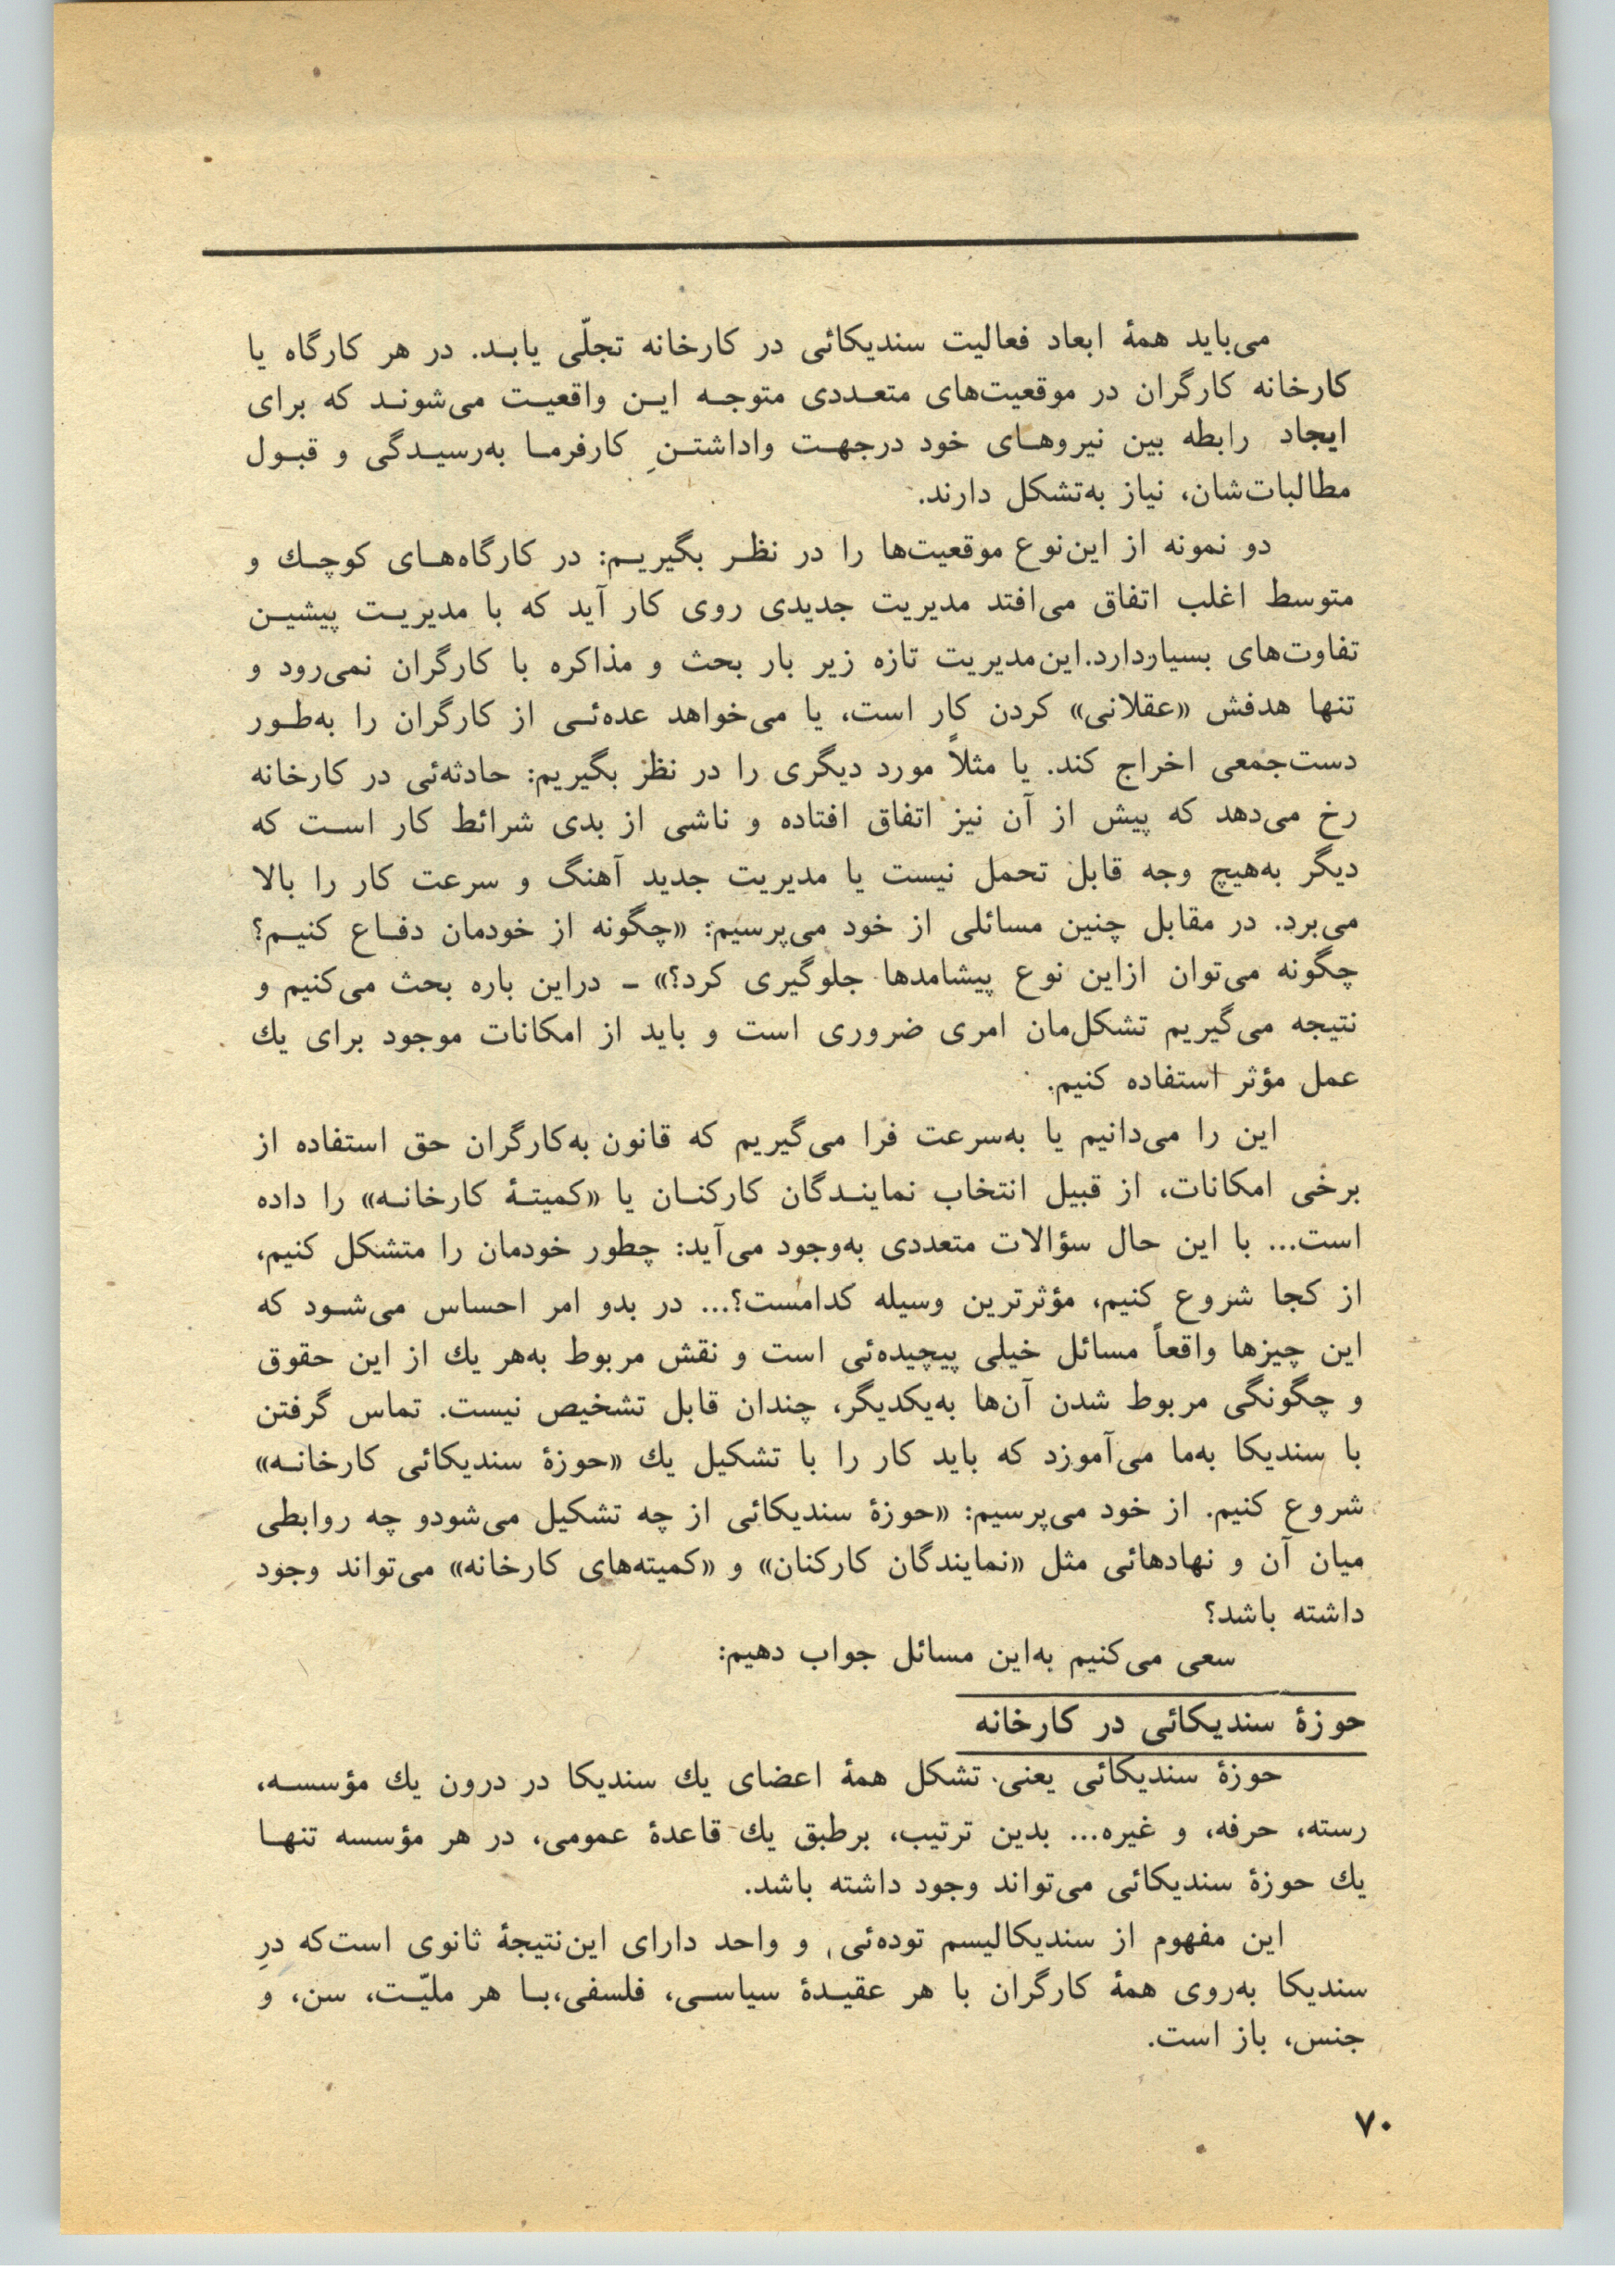 می‌باید همهٔ ابعاد فعالیت سندیکائی در کارخانه تجلّی یابـد. در هر کارگاه یا
کارخانه کارگران در موقعیت‌های متعـددی متوجـه ایـن واقعیـت می‌شونـد که برای
ایجاد رابطه بین نیروهـای خود درجهـت واداشتـنِ کارفرمـا به‌رسیـدگی و قبـول
مطالبات‌شان، نیاز به‌تشکل دارند.
دو نمونه از این‌نوع موقعیت‌ها را در نظـر بگیریـم: در کارگاه‌هـای کوچـك و
متوسط اغلب اتفاق می‌افتد مدیریت جدیدی روی کار آید که با مدیریـت پیشیـن
تفاوت‌های بسیاردارد.این‌مدیریت تازه زیر بار بحث و مذاکره با کارگران نمی‌رود و
تنها هدفش «عقلانی» کردن کار است، یا می‌خواهد عده‌ئـی از کارگران را به‌طـور
دست‌جمعی اخراج کند. یا مثلاً مورد دیگری را در نظر بگیریم: حادثه‌ئی در کارخانه
رخ می‌دهد که پیش از آن نیز اتفاق افتاده و ناشی از بدی شرائط کار اسـت که
دیگر به‌هیچ وجه قابل تحمل نیست یا مدیریت جدید آهنگ و سرعت کار را بالا
می‌برد. در مقابل چنین مسائلی از خود می‌پرسیم: «چگونه از خودمان دفـاع کنیـم؟
چگونه می‌توان ازاین نوع پیشامدها جلوگیری کرد؟» ـ دراین باره بحث می‌کنیم و
نتیجه می‌گیریم تشکل‌مان امری ضروری است و باید از امکانات موجود برای یك
عمل مؤثر استفاده کنیم.
این را می‌دانیم یا به‌سرعت فرا می‌گیریم که قانون به‌کارگران حق استفاده از
برخی امکانات، از قبیل انتخاب نماینـدگان کارکنـان یا «کمیتـهٔ کارخانـه» را داده
است... با این حال سؤالات متعددی به‌وجود می‌آید: چطور خودمان را متشکل کنیم،
از کجا شروع کنیم، مؤثرترین وسیله کدامست؟... در بدو امر احساس می‌شـود که
این چیزها واقعاً مسائل خیلی پیچیده‌ئی است و نقش مربوط به‌هر یك از این حقوق
و چگونگی مربوط شدن آن‌ها به‌یکدیگر، چندان قابل تشخیص نیست. تماس گرفتن
با سندیکا به‌ما می‌آموزد که باید کار را با تشکیل یك «حوزهٔ سندیکائی کارخانـه»
شروع کنیم. از خود می‌پرسیم: «حوزهٔ سندیکائی از چه تشکیل می‌شودو چه روابطی
میان آن و نهادهائی مثل «نمایندگان کارکنان» و «کمیته‌های کارخانه» می‌تواند وجود
داشته باشد؟
سعی می‌کنیم به‌این مسائل جواب دهیم:
حوزهٔ سندیکائی در کارخانه
حوزهٔ سندیکائی یعنی تشکل همهٔ اعضای یك سندیکا در درون یك مؤسسـه،
رسته، حرفه، و غیره... بدین ترتیب، برطبق یك قاعدهٔ عمومی، در هر مؤسسه تنهـا
یك حوزهٔ سندیکائی می‌تواند وجود داشته باشد.
این مفهوم از سندیکالیسم توده‌ئی و واحد دارای این‌نتیجهٔ ثانوی است‌که درِ
سندیکا به‌روی همهٔ کارگران با هر عقیـدهٔ سیاسـی، فلسفی،بـا هر ملیّـت، سن، و
جنس، باز است.
۷۰